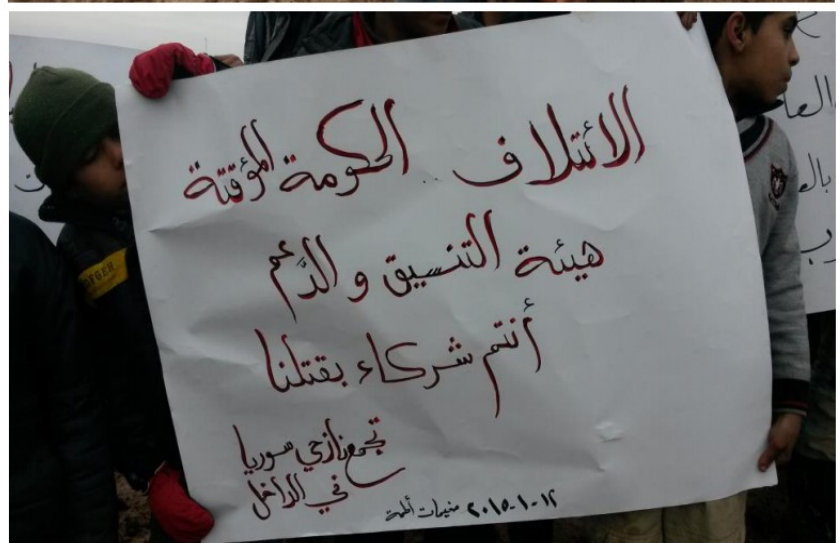 الائتلاف .. الحكومة المؤقتة
هيئة التنسيق و الدَّعم
أنتم شركاء بقتلنا
تجمع نازحي سوريا
في الداخل
مخيمات أطمة ١٢-١-٢٠١٥
العا
بالع